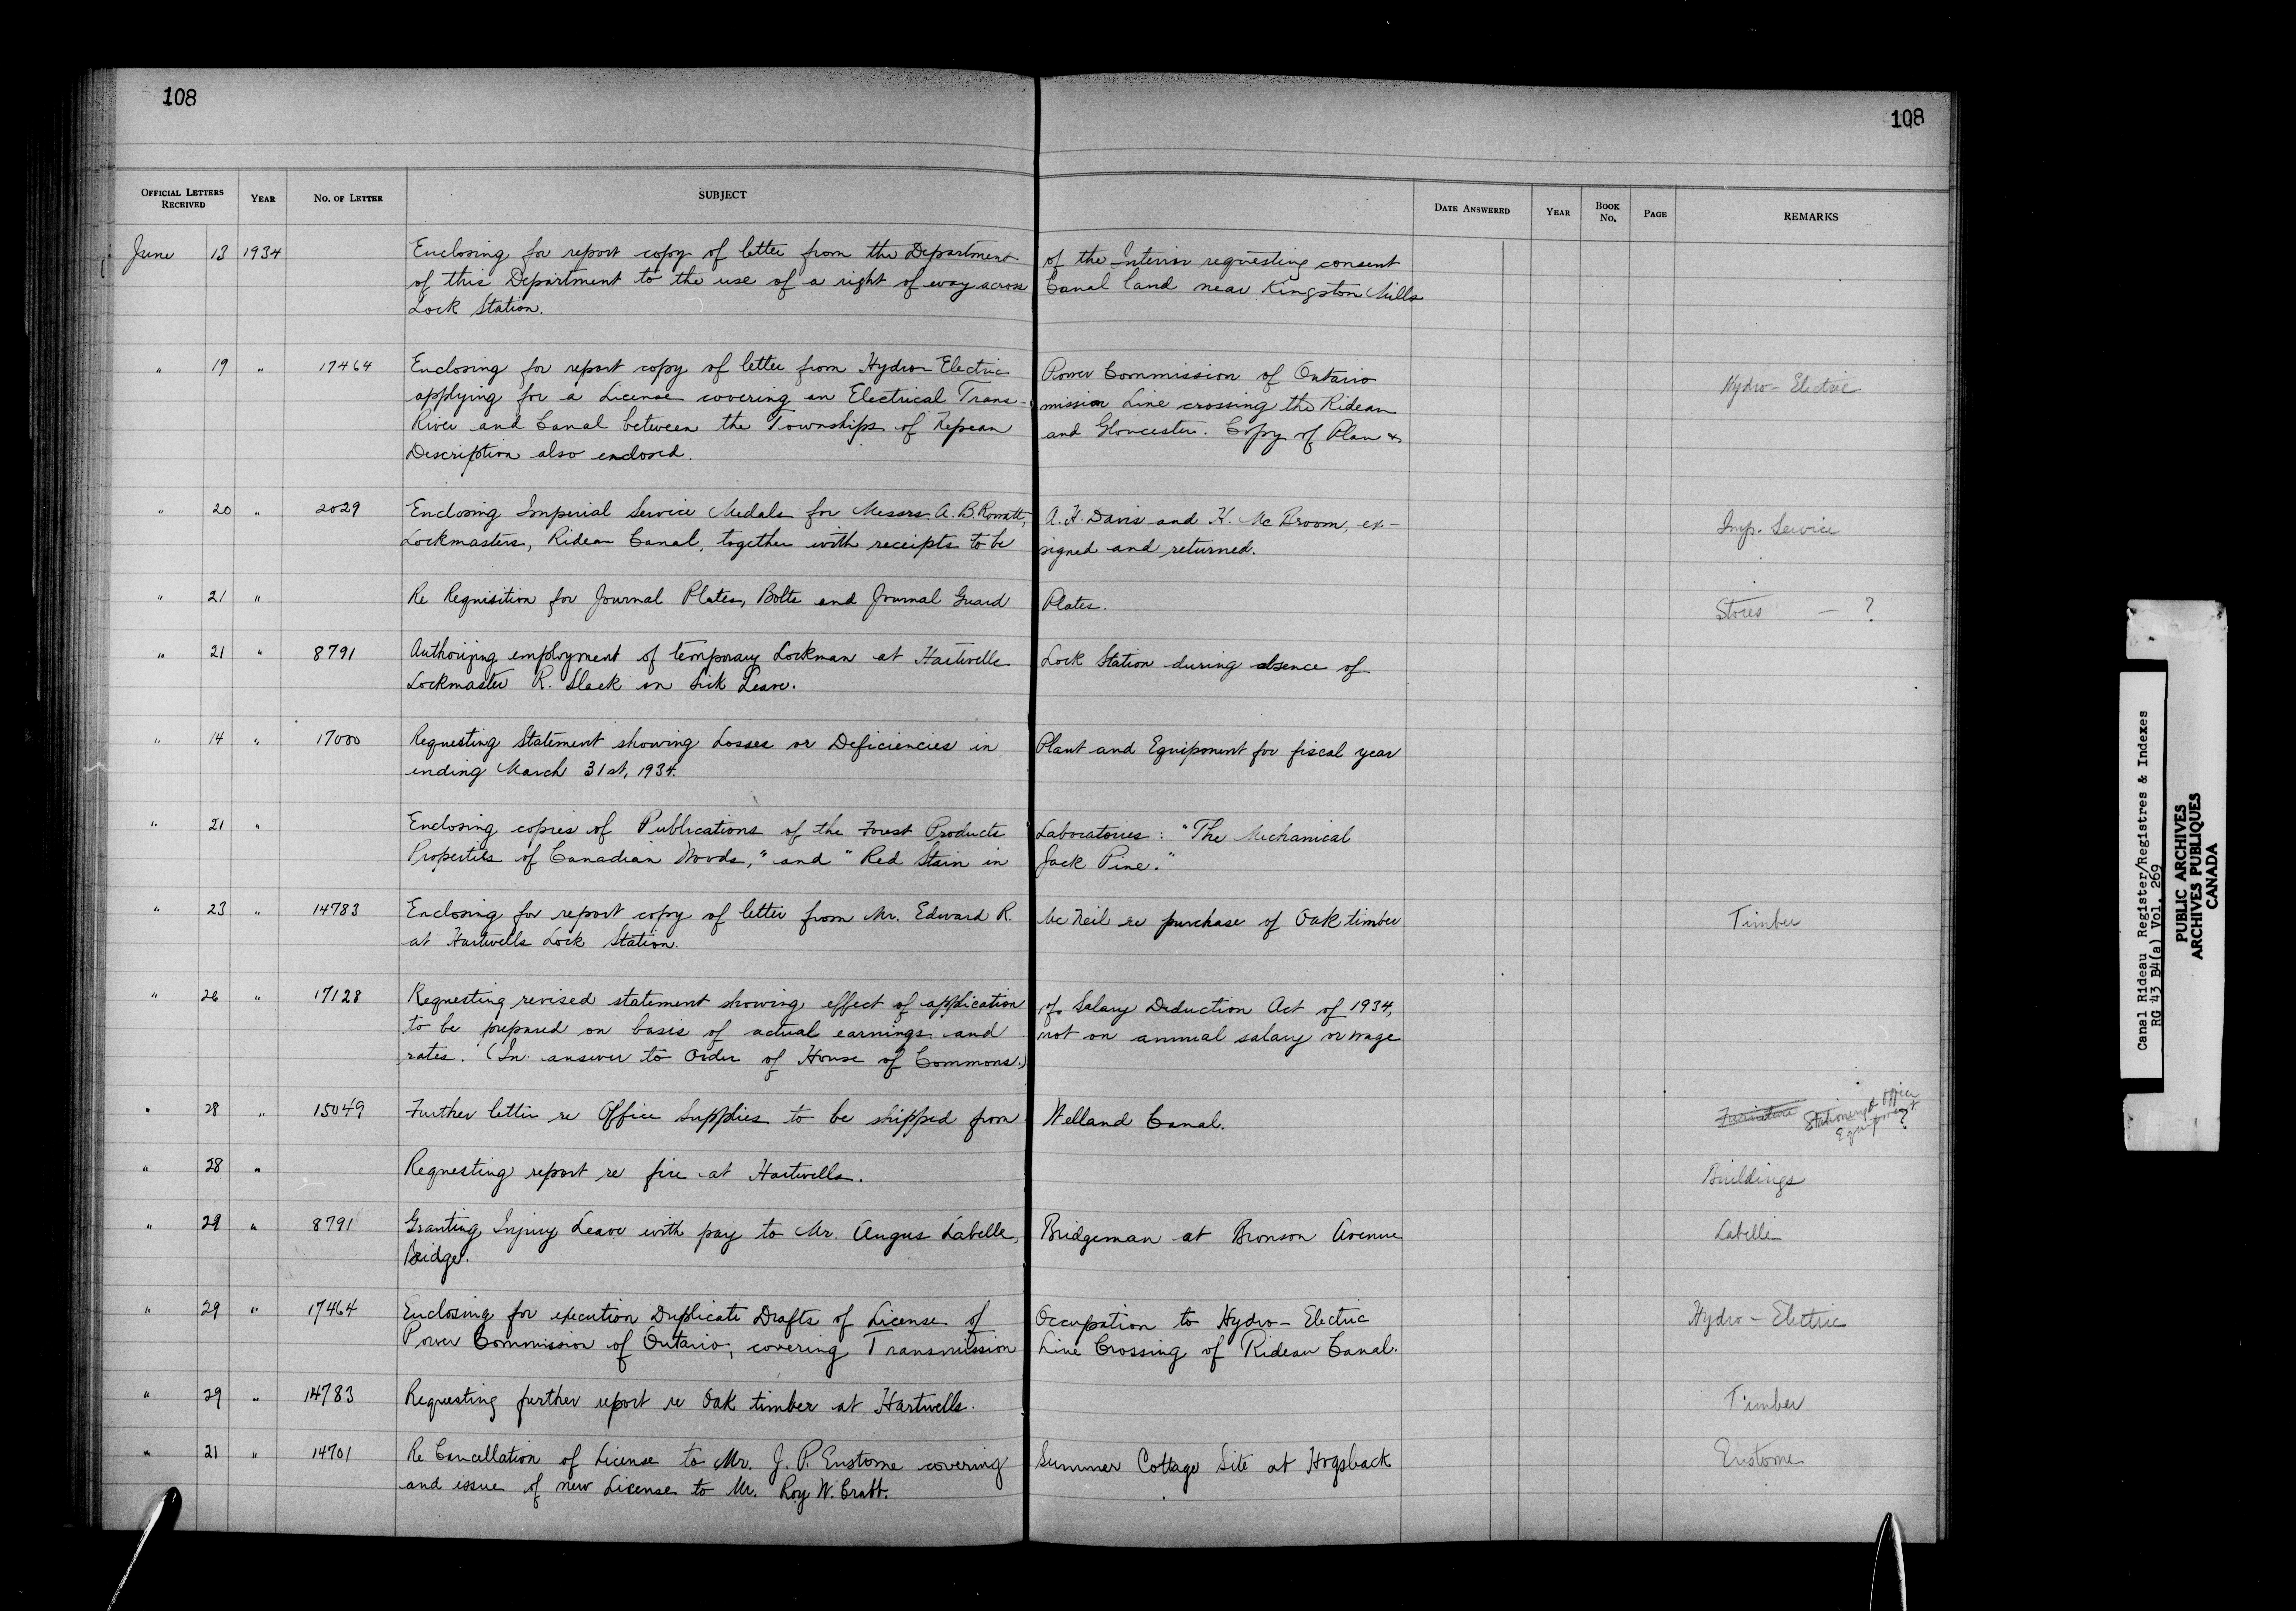 108
108
OFFICIAL LETTERS RECEIVED YEAR NO. OF LETTER SUBJECT DATE ANSWERED YEAR BOOK NO. PAGE REMARKS
June 13 1934 Enclosing for report copy of letter from the Department of the Interior requesting consent
of this Department to the use of a right of way across Canal land near Kingston Mills
Lock Station.
" 19 " 17464 Enclosing for report copy of letter from Hydro-Electric Power Commission of Ontario Hydro-Electric
applying for a License covering an Electrical Trans- mission Line crossing the Rideau
River and Canal between the Townships of Nepean and Gloucester. Copy of Plan &
Description also enclosed.
" 20 " 2029 Enclosing Imperial Service Medals for Messrs. A. B. Rowatt, A. H. Davis and H. McBroom, ex- Imp. Service
Lockmasters, Rideau Canal, together with receipts to be signed and returned.
" 21 " Re Requisition for Journal Plates, Bolts and Journal Guard Plates. Stores - ?
" 21 " 8791 Authorizing employment of temporary Lockman at Hartwells Lock Station during absence of
Lockmaster R. Slack on Sick Leave.
" 14 " 17000 Requesting Statement showing Losses or Deficiencies in Plant and Equipment for fiscal year
ending March 31st, 1934.
" 21 " Enclosing copies of Publications of the Forest Products Laboratories: "The Mechanical
Properties of Canadian Woods," and "Red Stain in Jack Pine."
" 23 " 14783 Enclosing for report copy of letter from Mr. Edward R. McNeil re purchase of Oak timber Timber
at Hartwells Lock Station.
" 26 " 17128 Requesting revised statement showing effect of application of Salary Deduction Act of 1934,
to be prepared on basis of actual earnings and not on annual salary or wage
rates. (In answer to Order of House of Commons.)
" 28 " 15049 Further letter re Office Supplies to be shipped from Welland Canal. Furniture Stationery & Office
Equipment ?
" 28 " Requesting report re fire at Hartwells. Buildings
" 29 " 8791 Granting Injury Leave with pay to Mr. Angus Labelle, Bridgeman at Bronson Avenue Labelle
Bridge.
" 29 " 17464 Enclosing for execution Duplicate Drafts of License of Occupation to Hydro-Electric Hydro-Electric
Power Commission of Ontario, covering Transmission Line Crossing of Rideau Canal.
" 29 " 14783 Requesting further report re Oak timber at Hartwells. Timber
" 21 " 14701 Re Cancellation of License to Mr. J. P. Enstome covering Summer Cottage Site at Hogsback Enstome
and issue of new License to Mr. Roy W. Bratt.
Canal Rideau Register/Registres & Indexes
RG 43 B4(a) Vol. 269
PUBLIC ARCHIVES
ARCHIVES PUBLIQUES
CANADA